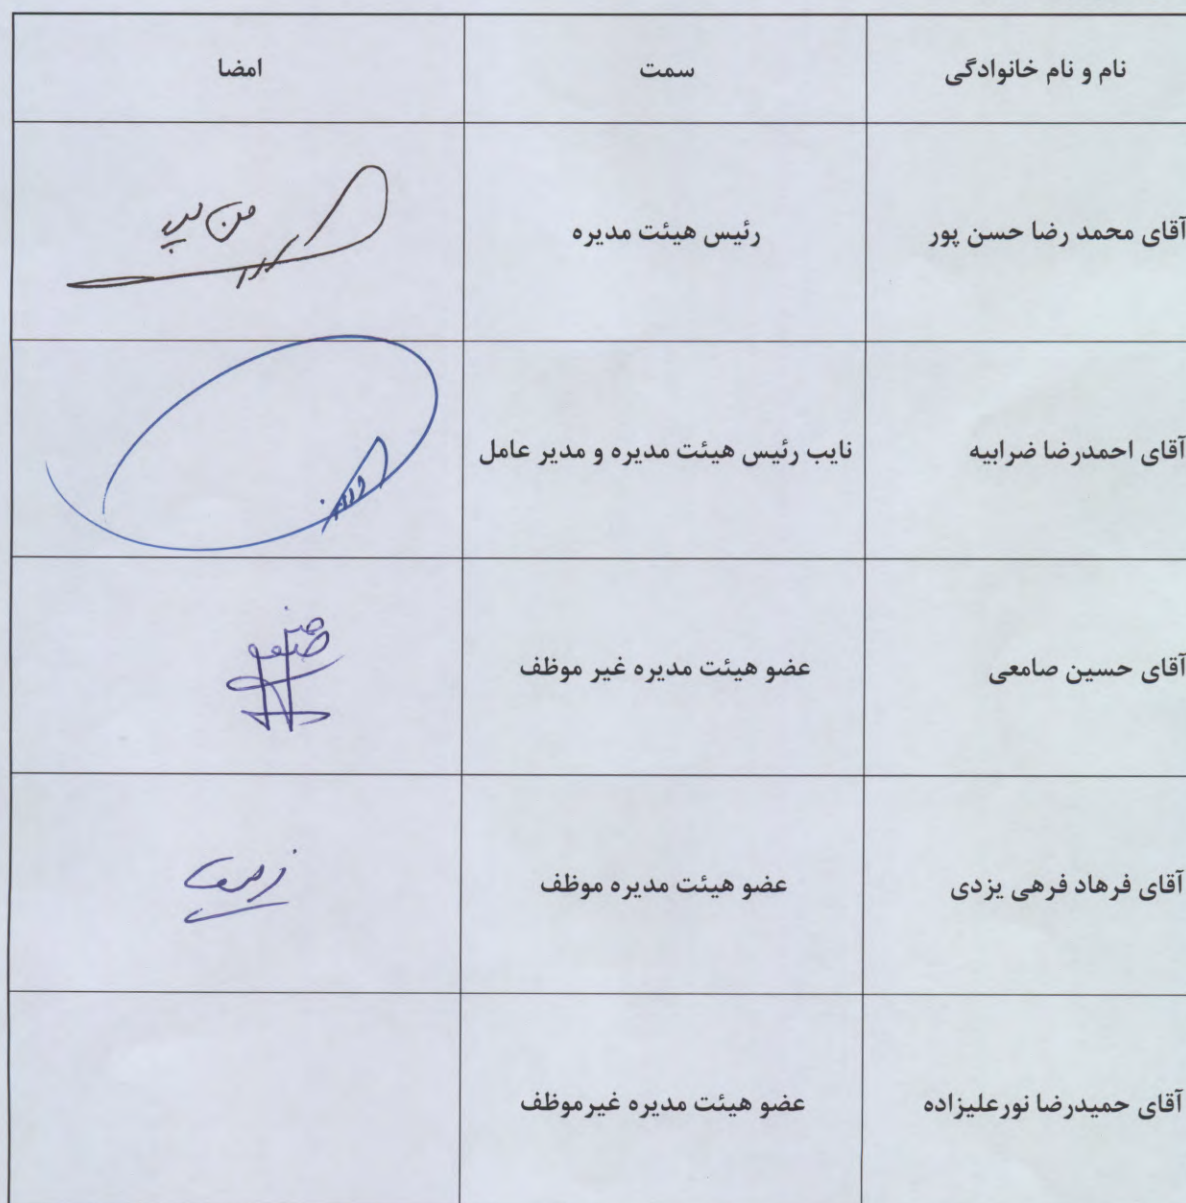 نام و نام خانوادگی سمت امضا
آقای محمد رضا حسن پور رئیس هیئت مدیره
آقای احمدرضا ضرابیه نایب رئیس هیئت مدیره و مدیر عامل
آقای حسین صامعی عضو هیئت مدیره غیر موظف
آقای فرهاد فرهی یزدی عضو هیئت مدیره موظف
آقای حمیدرضا نورعلیزاده عضو هیئت مدیره غیرموظف